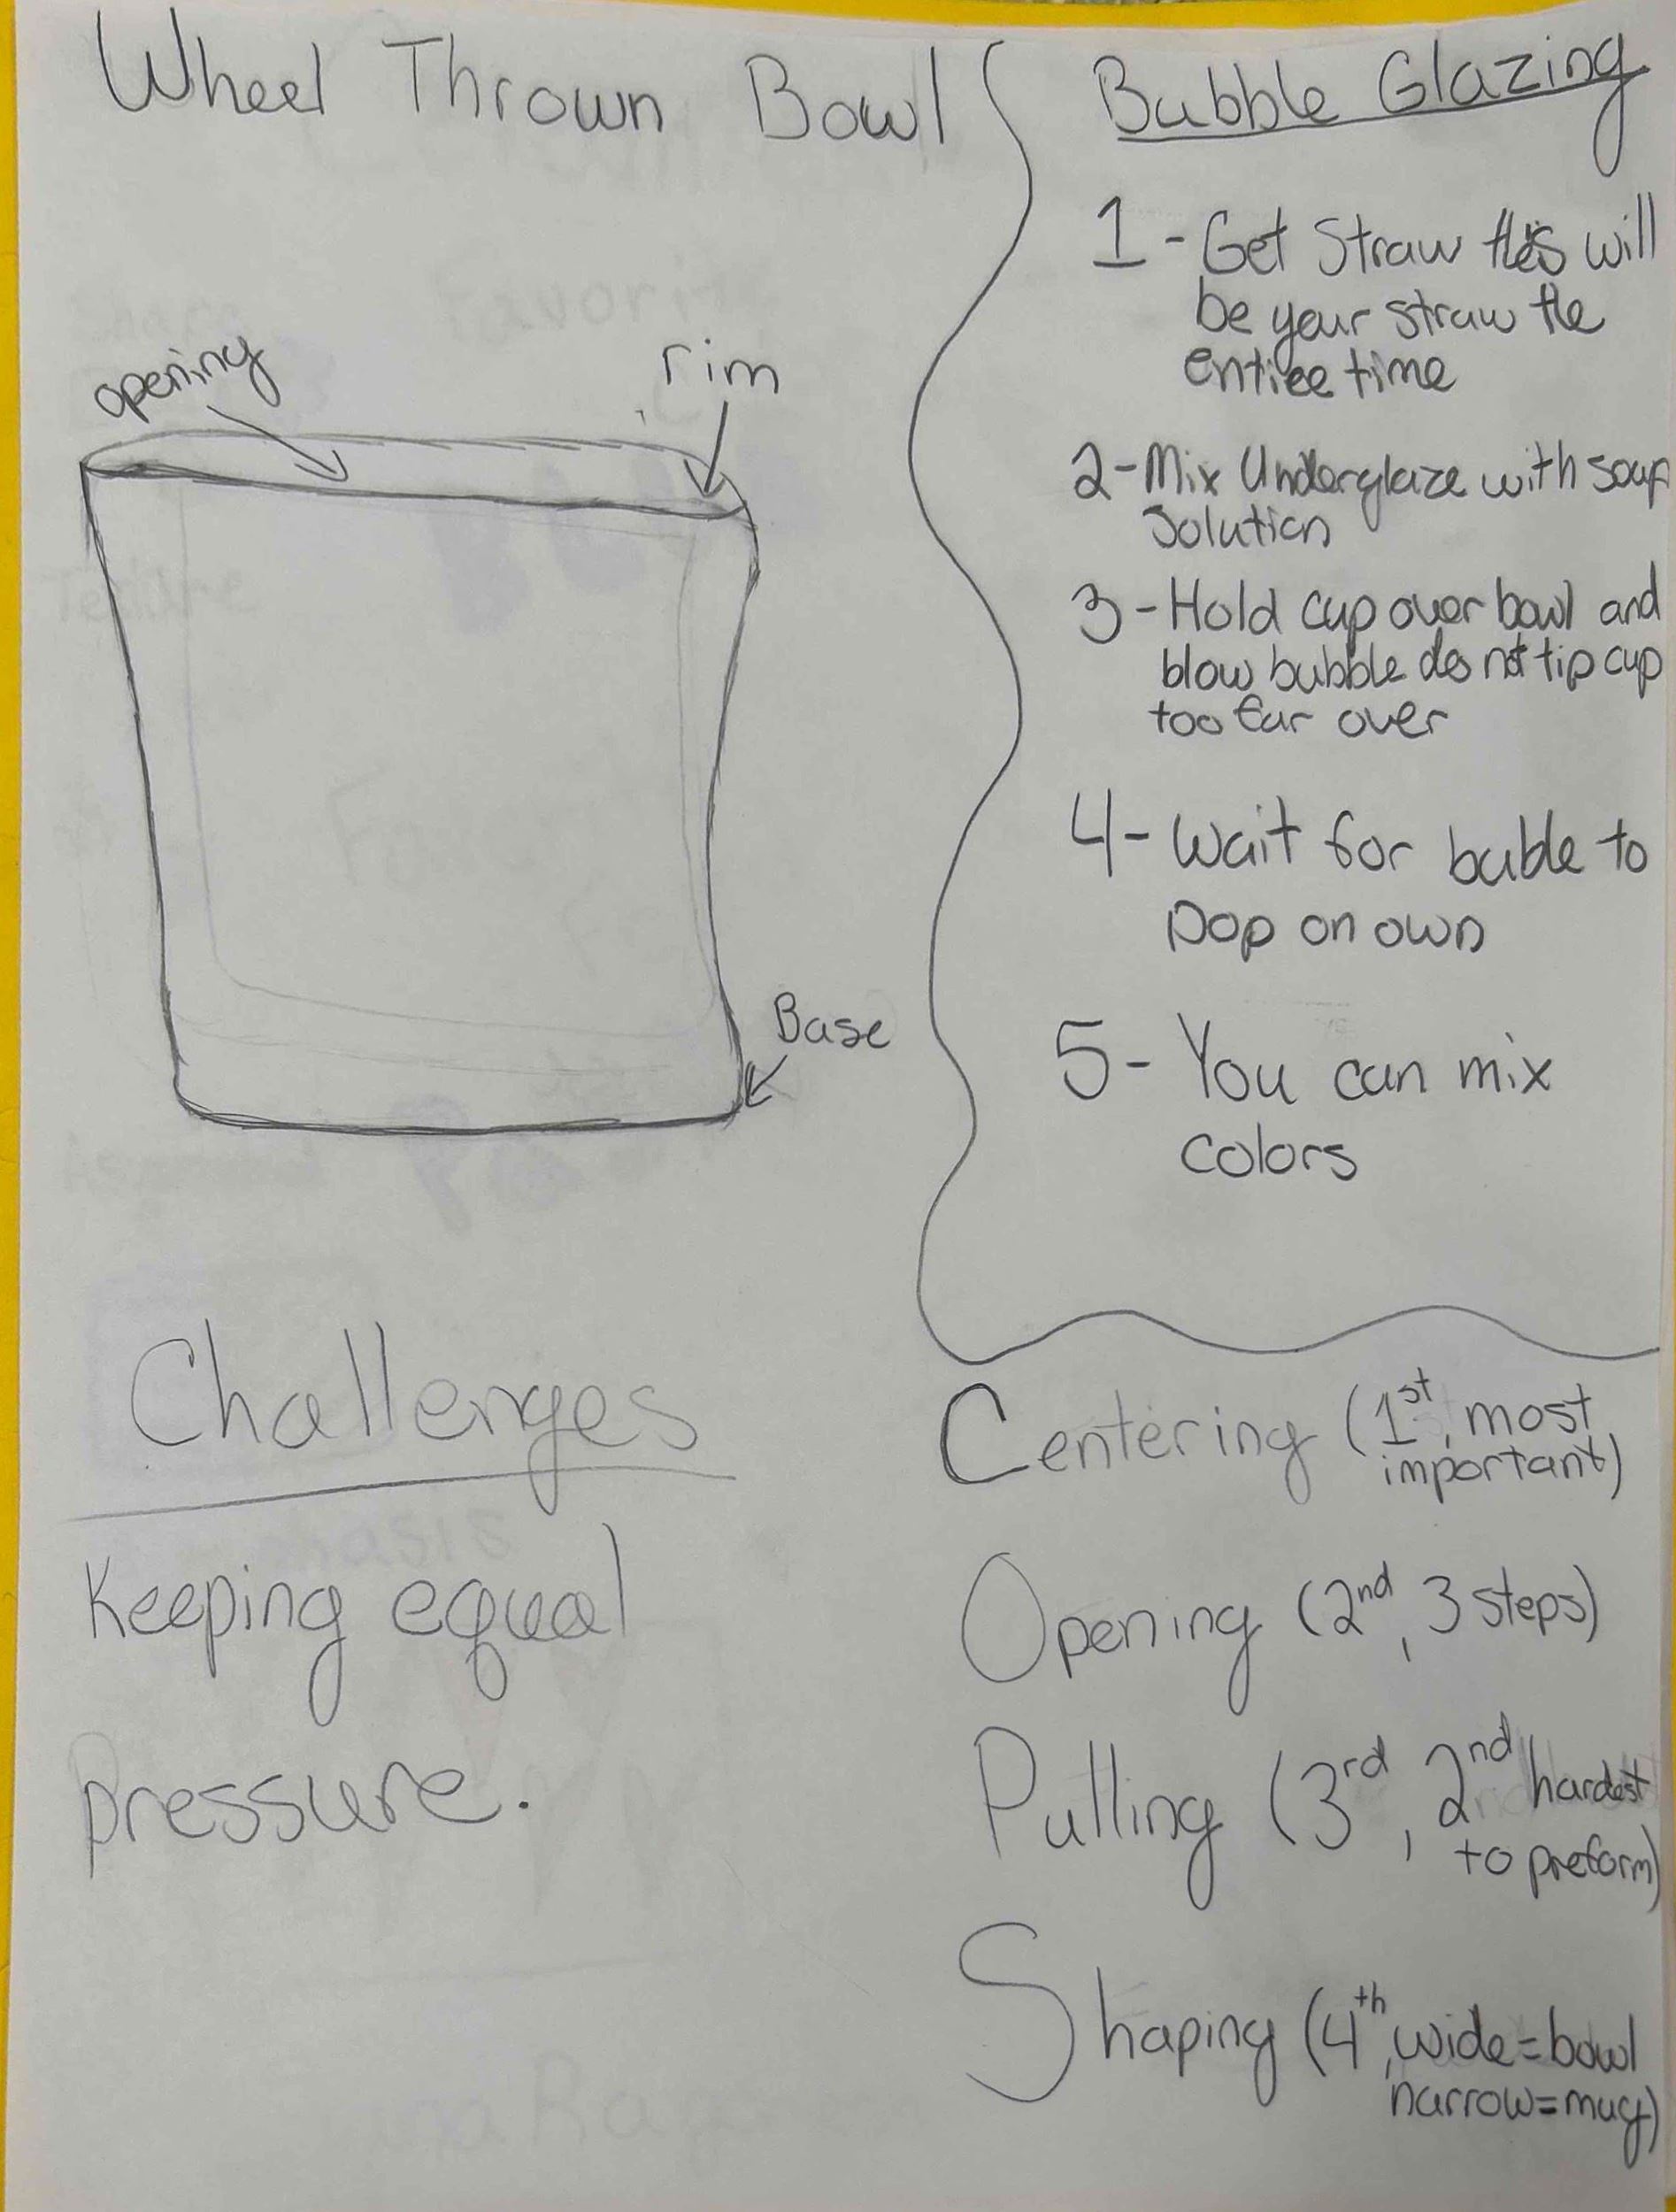 Wheel Thrown Bowl
opening
rim
Base
Bubble Glazing
1 - Get Straw this will
be your straw the
entire time
2 - Mix Underglaze with soap
Solution
3 - Hold cup over bowl and
blow bubble do not tip cup
too far over
4 - Wait for buble to
pop on own
5 - You can mix
colors
Challenges
Keeping equal
pressure.
Centering (1st, most
important)
Opening (2nd, 3 steps)
Pulling (3rd, 2nd hardest
to preform)
Shaping (4th, wide=bowl
narrow=mug)